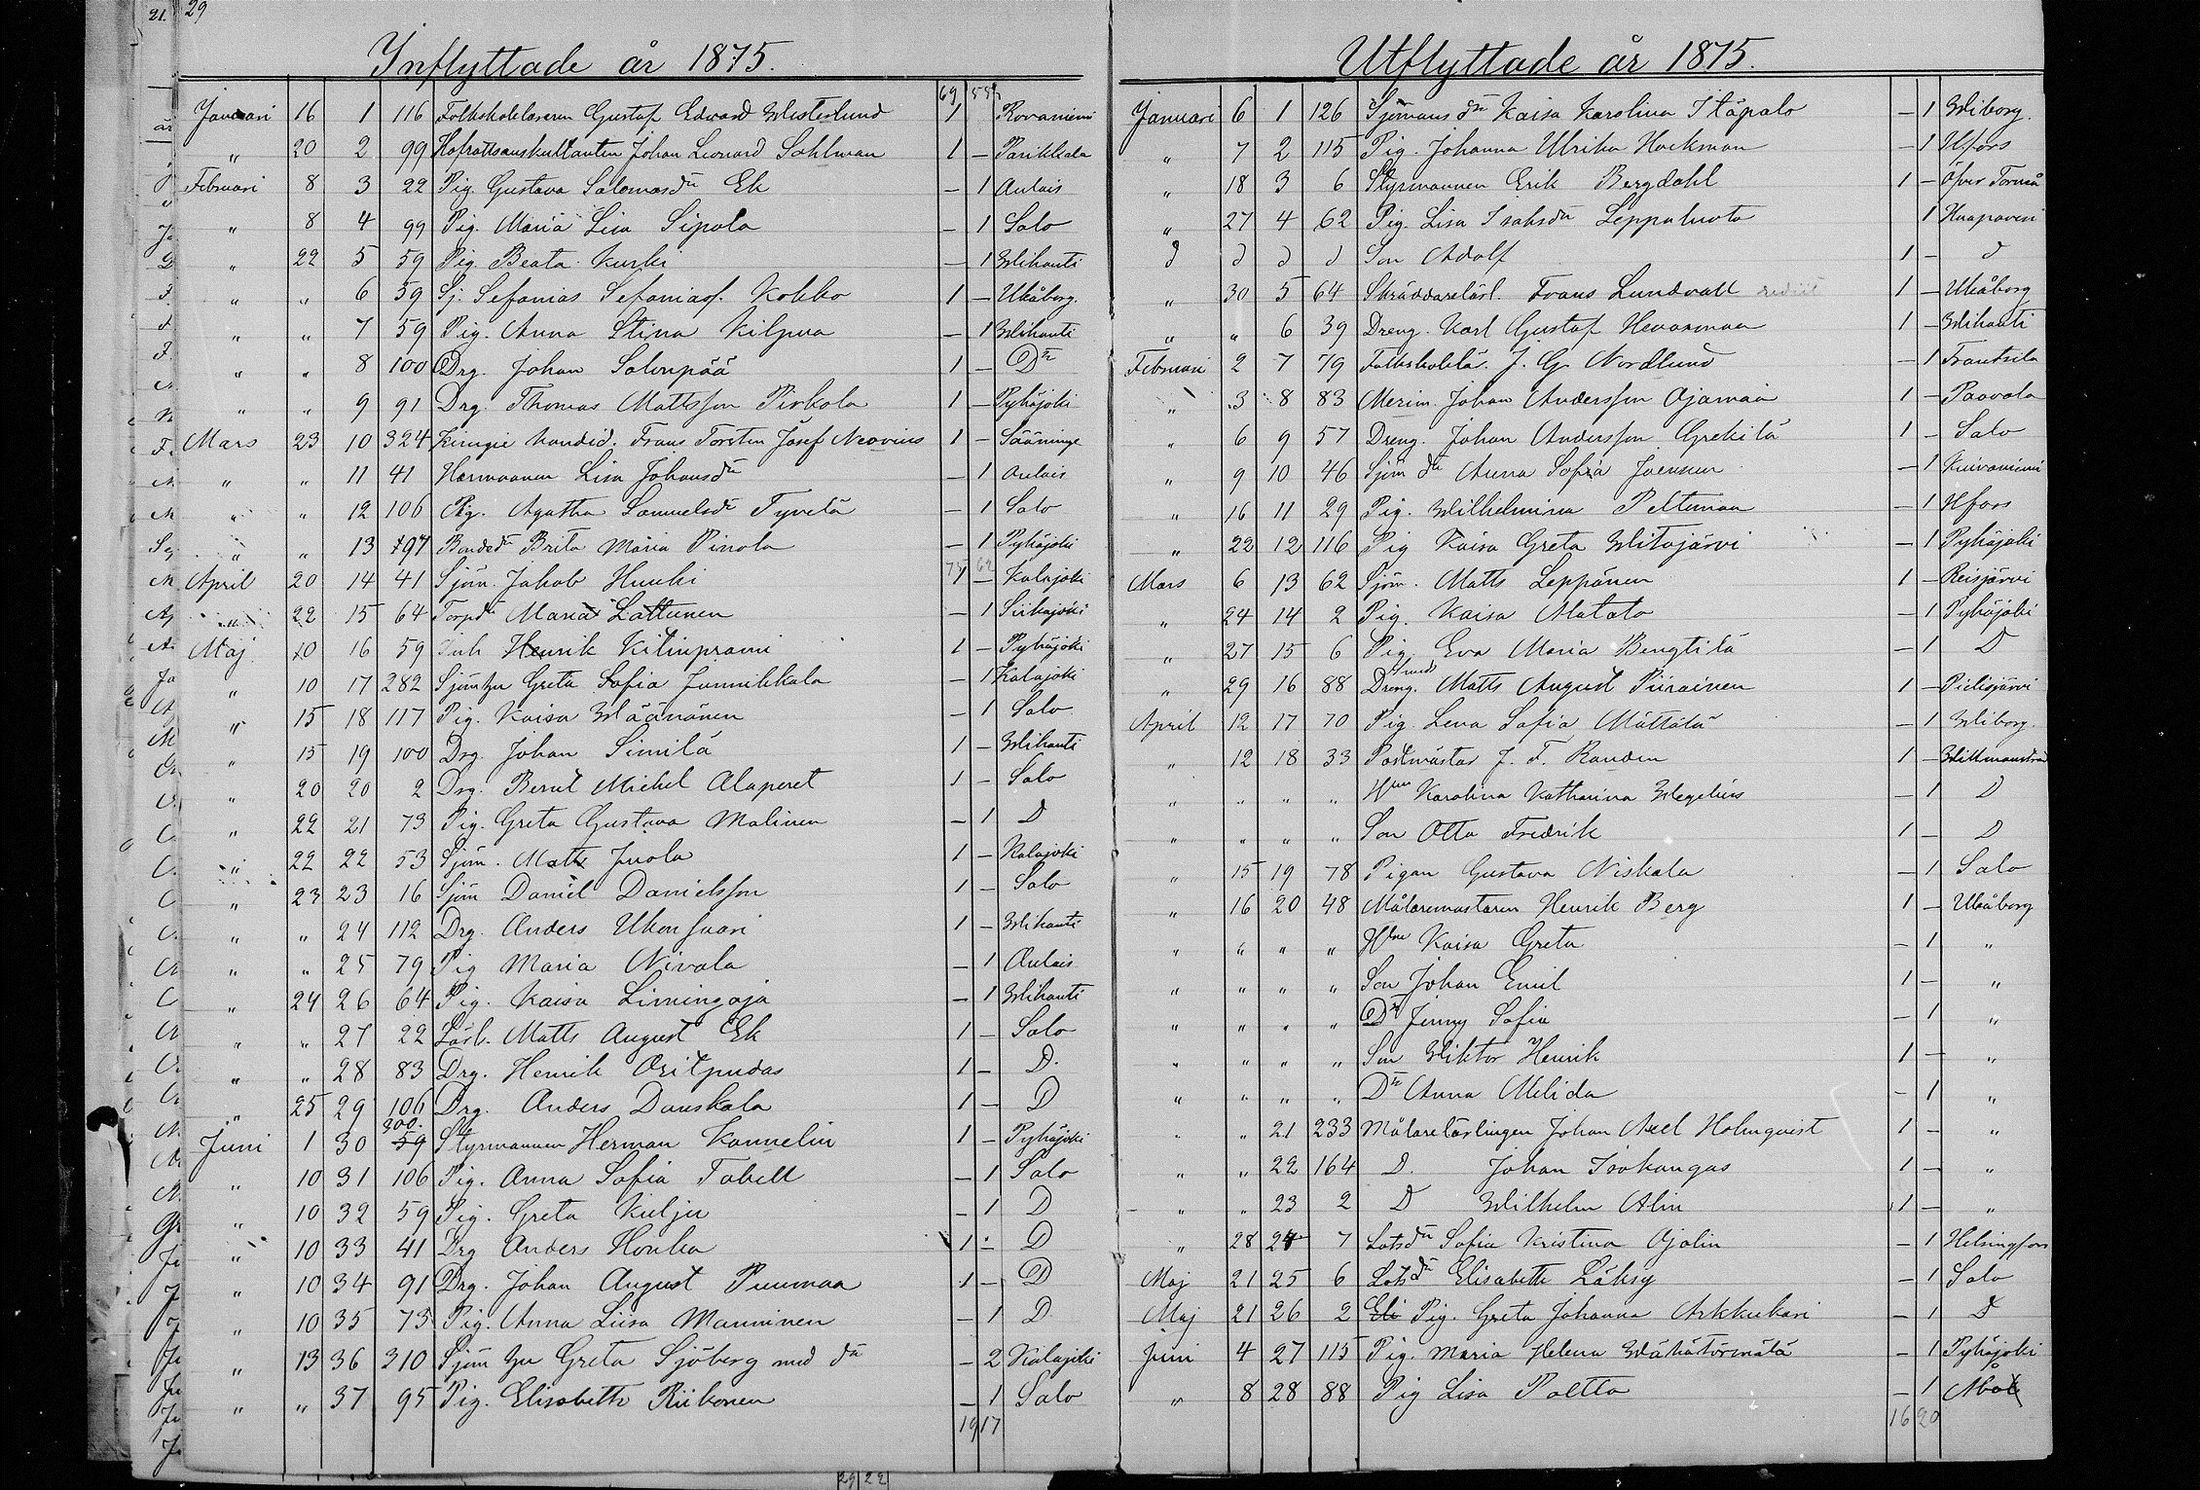 21. 29
Inflyttade år 1875.
69 55
Januari 16 1 116 Folkskoleläraren Gustaf Edward Westerlund 1 Rovaniemi
" 20 2 99 Hofrättsauskultanten Johan Leonard Sohlman 1 — Parikkala
Februari 8 3 22 Pig. Gustava Salomonsdr Ek — 1 Aulais
" 8 4 99 Pig. Maria Lisa Sipola — 1 Salo
" 22 5 59 Pig. Beata Kurki — 1 Wihanti
" " 6 59 Sj. Sefanias Sefaniass. Kokko 1 — Uleåborg.
" " 7 59 Pig. Anna Stina Kilpua — 1 Wihanti
" " 8 100 Drg. Johan Salonpää 1 — Do
" " 9 91 Drg. Thomas Mattsson Pirkola 1 — Pyhäjoki
Mars 23 10 324 Kirurgie Kandid. Frans Torsten Josef Neovius 1 — Sääminge
" " 11 41 Lisa Johansdr — 1 Aulais
" " 12 106 Pig. Agatha Samuelsdr Tyvelä — 1 Salo
" " 13 197 Bondedr Brita Maria Pinola — 1 Pyhäjoki
April 20 14 41 Sjöm. Jakob Huuki 1 — Kalajoki
" 22 15 64 Torpdr Maria Lattunen — 1 Siikajoki
Maj 10 16 59 Inh Henrik Kilinprami 1 — Pyhäjoki
" 10 17 282 Greta Sofia Junnikkala — 1 Kalajoki
" 15 18 117 Pig. Kaisa Wäänänen — 1 Salo
" 15 19 100 Drg. Johan Similä 1 — Wihanti
" 20 20 2 Drg. Berndt Michel Alaperet 1 — Salo
" 22 21 73 Pig. Greta Gustava Malinen — 1 D
" 22 22 53 Sjöm. Matts Juola 1 — Kalajoki
" 23 23 16 Sjöm Daniel Danielsson 1 — Salo
" " 24 112 Drg. Anders Ukonsaari 1 — Wihanti
" " 25 79 Pig Maria Nivala — 1 Aulais
" 24 26 64 Pig. Kaisa Limingoja — 1 Wihanti
" " 27 22 Lärl. Matts August Ek 1 — Salo
" " 28 83 Drg. Henrik Oritpudas 1 — D.
" 25 29 106 Drg. Anders Danskala 1 — D
Juni 1 30 300. 59 Styrmannen Herman Kannelin 1 — Pyhäjoki
" 10 31 106 Pig. Anna Sofia Tabell — 1 Salo
" 10 32 59 Pig. Greta Kulju — 1 D
" 10 33 41 Drg Anders Honka 1 — D
" 10 34 91 Drg. Johan August Puumaa 1 — D
" 10 35 73 Pig. Anna Liisa Manninen — 1 D
" 13 36 310 Sjöm Greta Sjöberg med dr — 2 Kalajoki
" " 37 95 Pig. Elisabeth Riikonen — 1 Salo
19 17
Utflyttade år 1875.
Januari 6 1 126 Sjömansdr Kaisa Karolina Itäpalo — 1 Wiborg.
" 7 2 115 Pig. Johanna Ulrika Hackman — 1 Hfors
" 18 3 6 Styrmannen Erik Bergdahl 1 — Öfver Torneå
" 27 4 62 Pig. Lisa Isaksdr Leppaluoto 1 Haapavesi
d d d d Son Adolf 1 — d
" 30 5 64 Skräddarelärl. Frans Lundvall 1 — Uleåborg
" " 6 39 Dreng. Karl Gustaf Hevarmaa 1 — Wihanti
Februari 2 7 79 Folkskolelär. J. G. Nordlund — 1 Frantsila
" 3 8 83 Johan Andersson Ojamaa 1 — Paavola
" 6 9 57 Dreng. Johan Andersson Grekilä 1 — Salo
" 9 10 46 Sjöm dr Anna Sofia Joensuu — 1 Kuivaniemi
" 16 11 29 Pig. Wilhelmina Peltmaa — 1 Hfors
" 22 12 116 Pig Kaisa Greta Witajärvi — 1 Pyhäjoki
Mars 6 13 62 Sjöm. Matts Leppänen 1 — Reisjärvi
" 24 14 2 Pig. Kaisa Matato — 1 Pyhäjoki
" 27 15 6 Pig. Eva Maria Bengtilä — 1 D
" 29 16 88 Dreng. Matts August Piirainen 1 — Pielisjärvi
April 12 17 70 Pig. Lena Sofia Mattala — 1 Wiborg.
" 12 18 33 Postmästar J. F. Randen 1 — Willmanstrand
" " " " Hun Karolina Katharina Wegelius — 1 D
" " " " Son Otto Fredrik 1 — D
" 15 19 78 Pigan Gustava Niskala — 1 Salo
" 16 20 48 Målaremästaren Henrik Berg 1 — Uleåborg
" " " " Hun Kaisa Greta — 1 "
" " " " Son Johan Emil 1 — "
" " " " Dr Jenny Sofia — 1 "
" " " " Son Wiktor Henrik 1 — "
" " " " Dr Anna Melida — 1 "
" " 21 233 Målarelärlingen Johan Axel Holmqvist 1 — "
" " 22 164 D. Johan Isokangas 1 — "
" " 23 2 D Wilhelm Alin 1 — "
" 28 24 7 Lotsdr Sofia Kristina Ojalin — 1 Helsingfors
Maj 21 25 6 Lotsdr Elisabeth Läksy — 1 Salo
Maj 21 26 2 Eli Pig. Greta Johanna Arkkukari — 1 D
Juni 4 27 115 Pig. Maria Helena Wähätörmälä — 1 Pyhäjoki
" 8 28 88 Pig Lisa Poltto — 1 Åbo
16 20
29 22